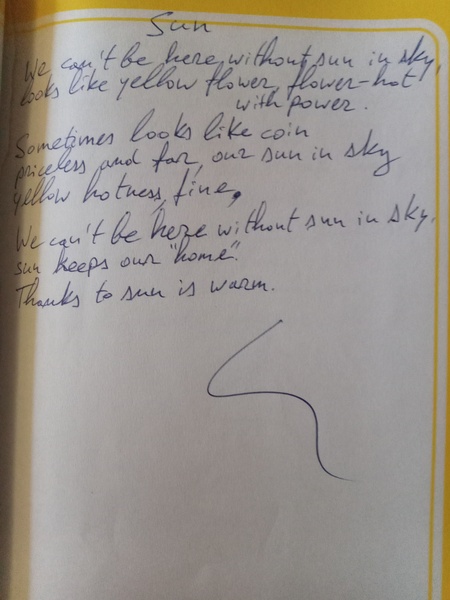 Sun
We can't be here without sun in sky,
looks like yellow flower, flower-hot
with power.
Sometimes looks like coin
priceless and far, our sun in sky
yellow hotness, fine,
We can't be here without sun in sky,
sun keeps our "home".
Thanks to sun is warm.